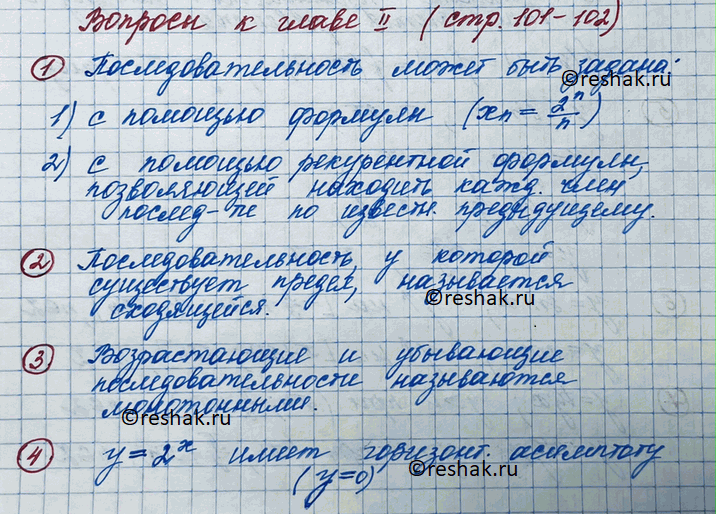 Вопросы к главе II (стр. 101-102)
1 Последовательность может быть задана:
©reshak.ru
1) с помощью формулы (xₙ = 2ⁿ/n)
2) с помощью рекурентной формулы,
позволяющей находить кажд. член
послед-ти по известн. предыдущему.
2 Последовательность, у которой
существует предел, называется
©reshak.ru
сходящейся.
3 Возрастающие и убывающие
последовательности называются
монотонными.
©reshak.ru
4 y = 2ˣ имеет горизонт. асимптоту
(y=0)
©reshak.ru